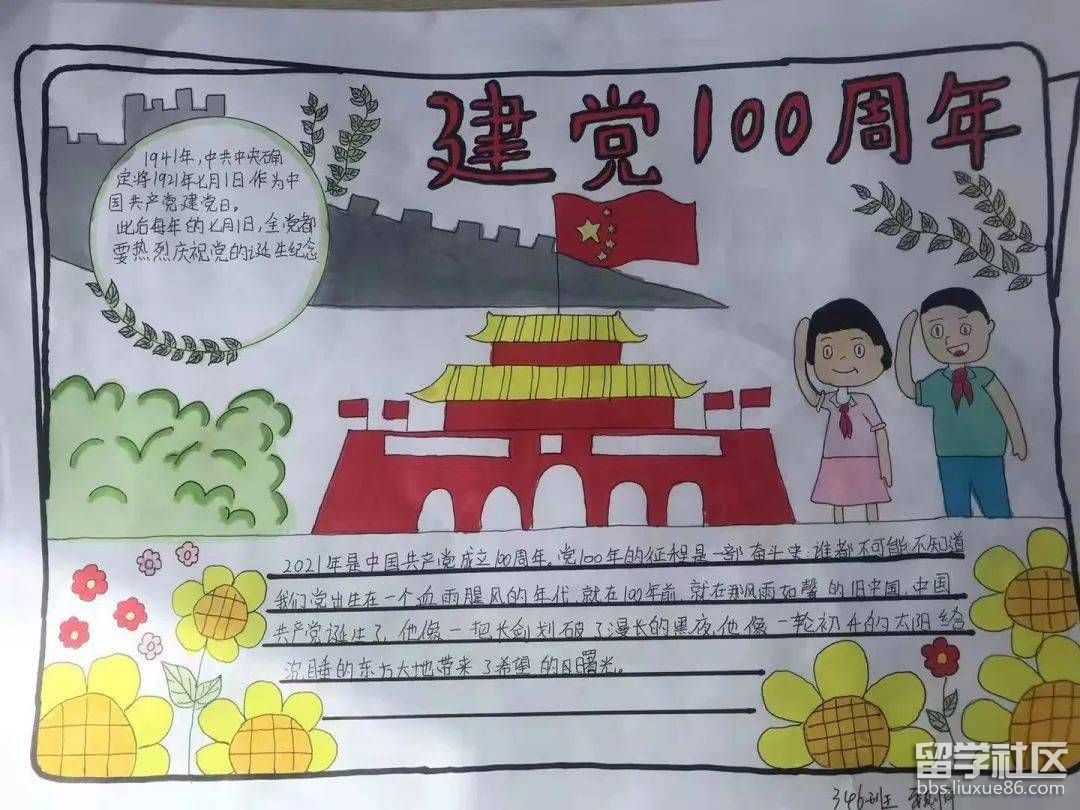 建党100周年
1941年,中共中央确
定将1921年七月1日作为中
国共产党建党日。
此后每年的七月1日,全党都
要热烈庆祝党的诞生纪念
2021年是中国共产党成立100周年。党100年的征程是一部奋斗史.谁都不可能不知道
我们党出生在一个血雨腥风的年代.就在100年前.就在那风雨如磐的旧中国.中国
共产党诞生了.他像一把长剑划破了漫长的黑夜.他像一轮初升的太阳给
沉睡的东方大地带来了希望的曙光。
346班
留学社区
bbs.liuxue86.com